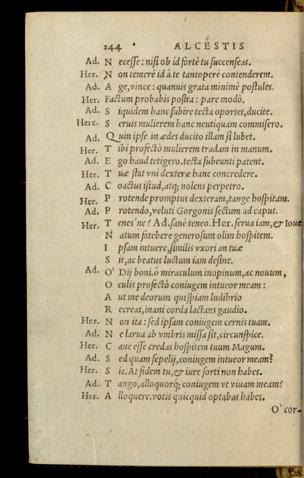 244 ALCESTIS
Ad. N ecesse: nisi ob id fortè tu succenseas.
Her. N on temerè id à te tantopere contenderem.
Ad. A ge, vince: quanuis grata minimè postules.
Her. F actum probabis postea: pare modò.
Ad. S iquidem hanc subire tecta oportet, ducite.
Herc. S eruis mulierem hanc neutiquam commisero.
Ad. Q uin ipse in ædes ducito illam si lubet.
Her. T ibi profectò mulierem tradam in manum.
Ad. E go haud tetigero. tecta subeunti patent.
Her. T uæ stat vni dexteræ hanc concredere.
Ad. C oactus istud, atq; nolens perpetro.
Her. P rotende promptus dexteram, tange hospitam.
Ad. P rotendo, velut Gorgonis sectum ad caput.
Her. T enes'ne? Ad. sanè teneo. Her. serua iam, & Ioue
N atum fatebere generosum olim hospitem.
I psam intuere, similis vxori an tuæ
S it, ac beatus luctum iam desine.
Ad. O' Dij boni. ô miraculum inopinum, ac nouum,
O culis profectò coniugem intueor meam:
A ut me deorum quispiam ludibrio
R ecreat, inani corda lactans gaudio.
Her. N on ita: sed ipsam coniugem cernis tuam.
Ad. N e larua ab vmbris missa sit, circunspice.
Her. C aue esse credas hospitem tuum Magum.
Ad. S ed quam sepelij, coniugem intueor meam?
Her. S ic. At fidem tu, & iure sorti non habes.
Ad. T ango, alloquorq; coniugem vt viuam meam?
Her. A lloquere. votis quicquid optabas habes.
O' cor-